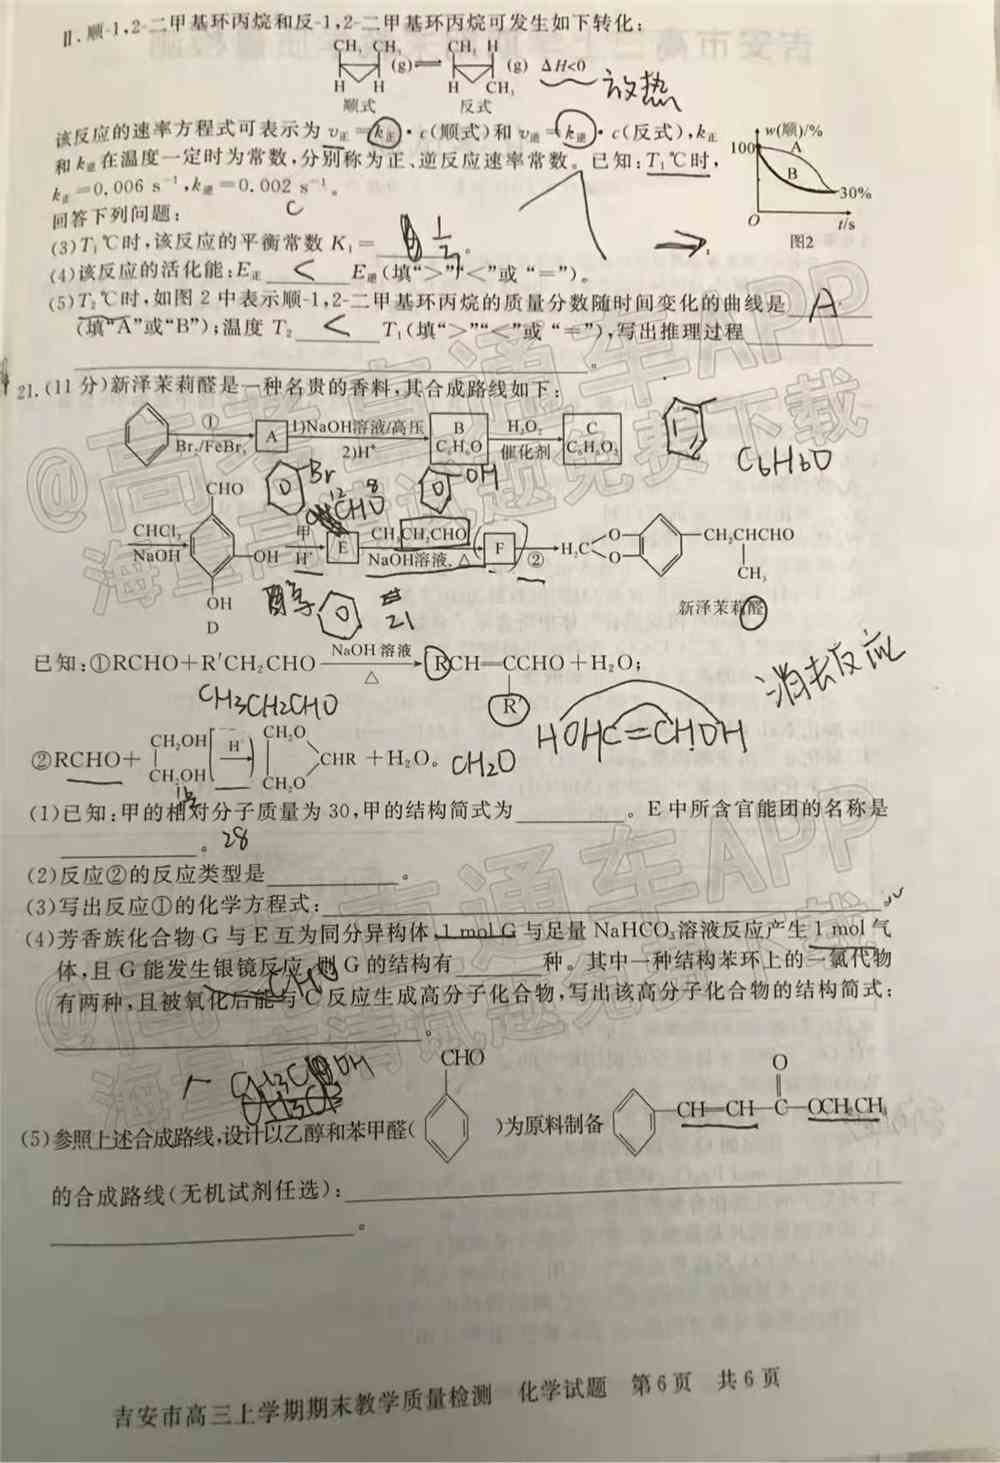 Ⅱ.顺-1,2-二甲基环丙烷和反-1,2-二甲基环丙烷可发生如下转化:
CH₃ CH₃ CH₃ H
(g)⇌ (g) ΔH<0 放热
H H H CH₃
顺式 反式
该反应的速率方程式可表示为v正=k正·c(顺式)和v逆=k逆·c(反式),k正
和k逆在温度一定时为常数,分别称为正、逆反应速率常数。已知:T₁℃时,
k正=0.006 s⁻¹,k逆=0.002 s⁻¹。
w(顺)/%
100
A
B
30%
O
t/s
图2
回答下列问题:
(3)T₁℃时,该反应的平衡常数K₁=____。
(4)该反应的活化能:E正 < E逆(填“>”“<”或“=”)。
(5)T₂℃时,如图2中表示顺-1,2-二甲基环丙烷的质量分数随时间变化的曲线是 A
(填“A”或“B”);温度T₂ < T₁(填“>”“<”或“=”),写出推理过程____
____。
21.(11分)新泽茉莉醛是一种名贵的香料,其合成路线如下:
① Br₂/FeBr₃ A 1)NaOH溶液/高压 2)H⁺ B C₆H₆O H₂O₂ 催化剂 C C₆H₆O₂
C6H6O
Br OH
CHO
CHCl₃ NaOH OH 甲 H⁺ E CH₃CH₂CHO NaOH溶液,△ F ② H₂C O O CH₂CHCHO
CH₃
OH
D
醇
新泽茉莉醛
已知:①RCHO+R′CH₂CHO NaOH溶液 △ RCH=CCHO+H₂O;
R′
消去反应
CH3CH2CHO
HOHC=CHOH
②RCHO+ CH₂OH CH₂OH H⁺ CH₂O CH₂O CHR +H₂O。 CH2O
(1)已知:甲的相对分子质量为30,甲的结构简式为____。E中所含官能团的名称是
____。 28
(2)反应②的反应类型是____。
(3)写出反应①的化学方程式:____
(4)芳香族化合物G与E互为同分异构体,1 mol G与足量NaHCO₃溶液反应产生1 mol气
体,且G能发生银镜反应,则G的结构有____种。其中一种结构苯环上的一氯代物
有两种,且被氧化后能与C反应生成高分子化合物,写出该高分子化合物的结构简式:
____。
(5)参照上述合成路线,设计以乙醇和苯甲醛( CHO )为原料制备 CH=CH-C-OCH₂CH₃
O
的合成路线(无机试剂任选):____
____。
吉安市高三上学期期末教学质量检测 化学试题 第6页 共6页
@高考直通车APP
海量高清试题免费下载
@高考直通车APP
海量高清试题免费下载